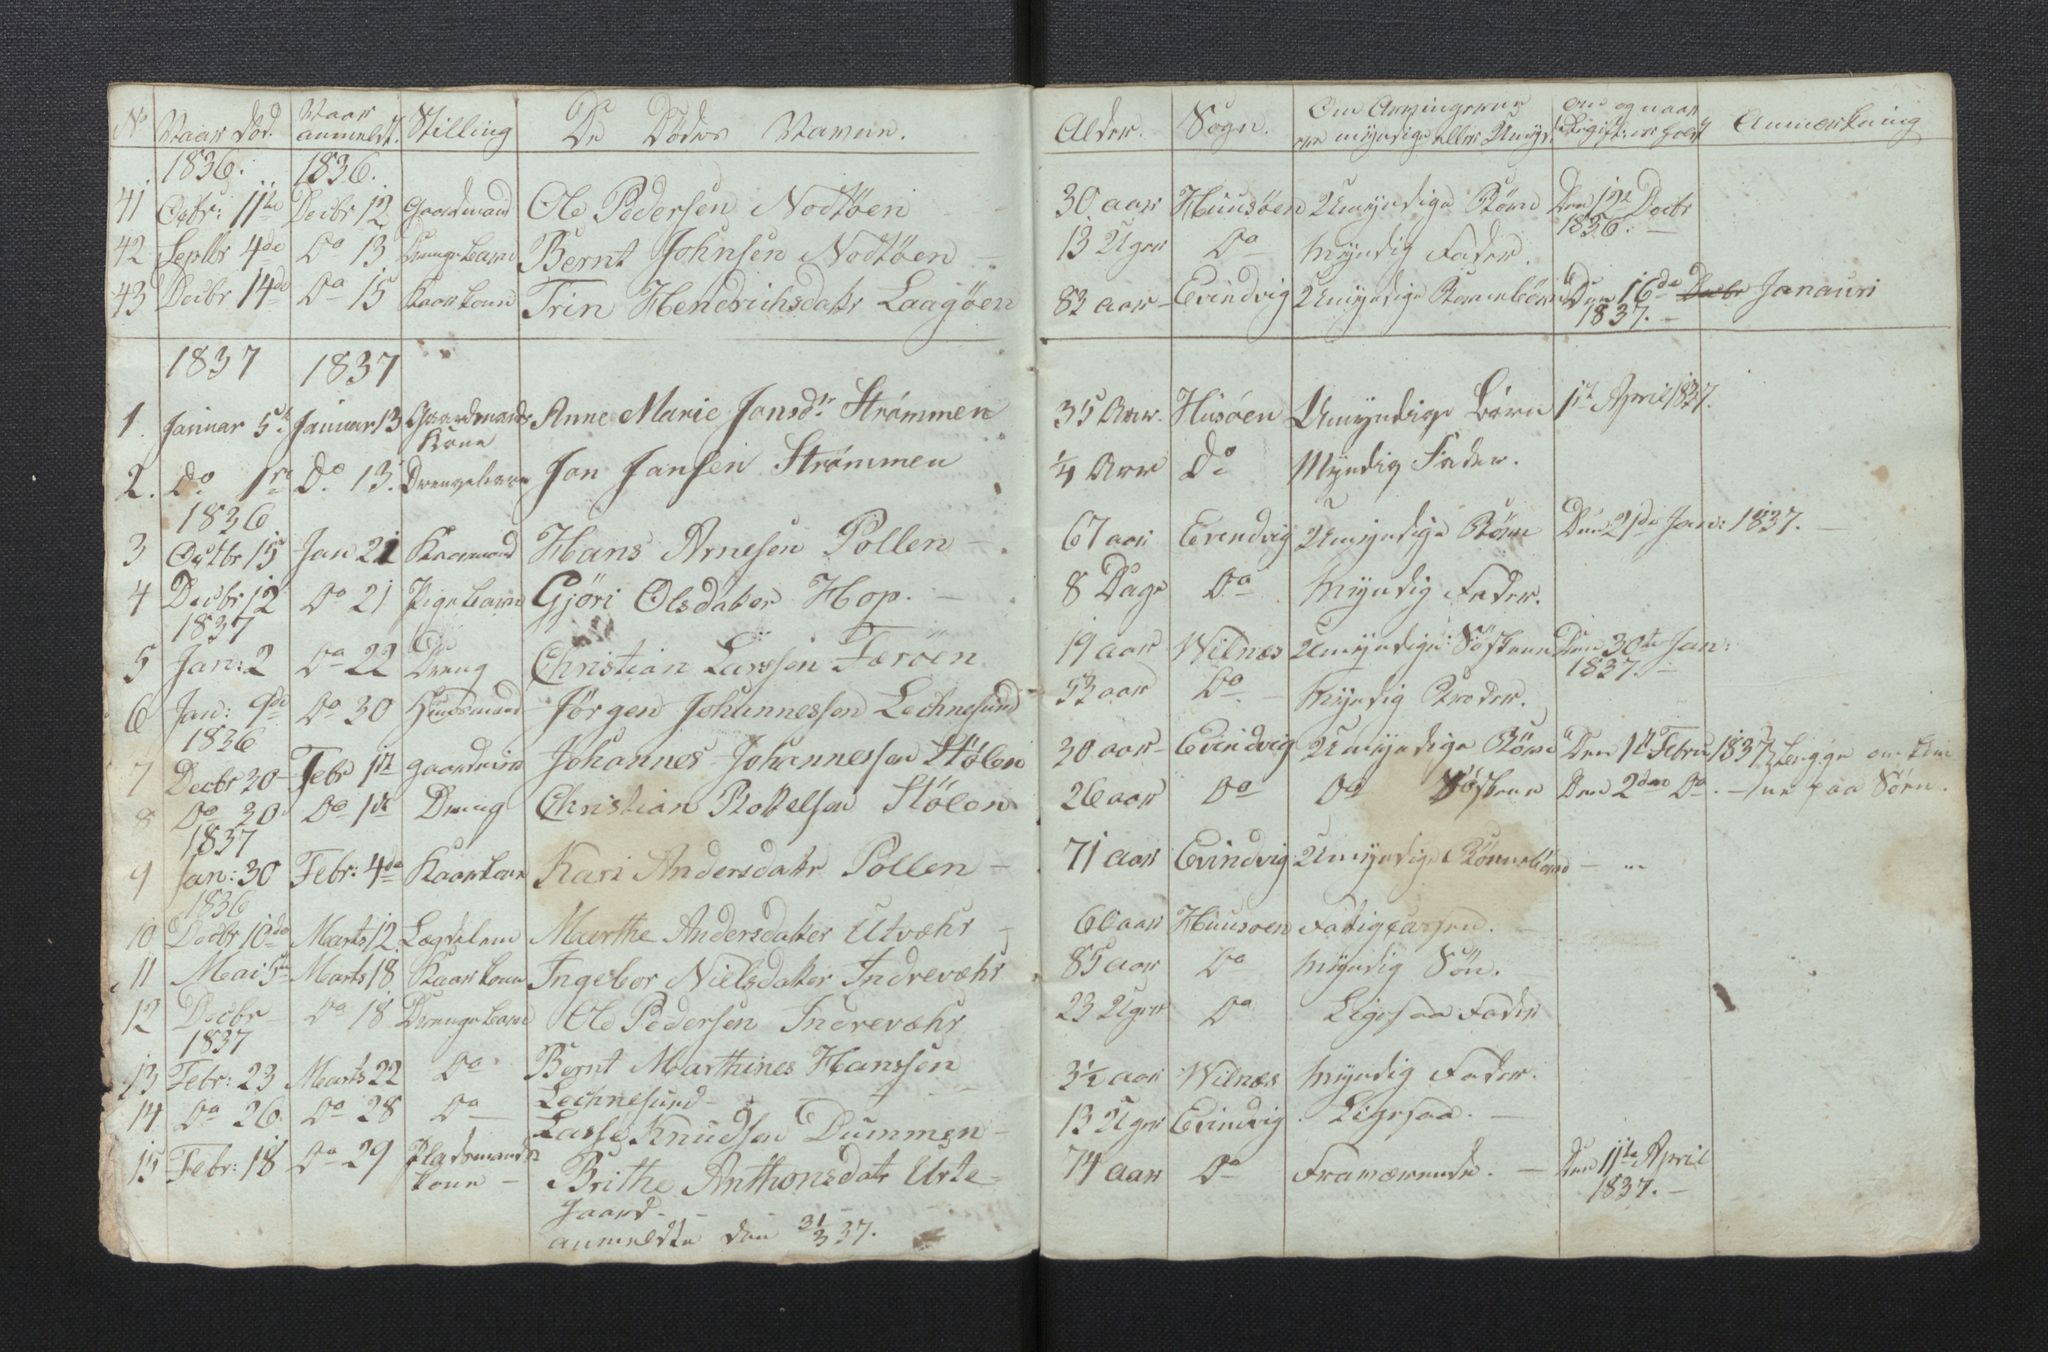 No Naar død. Naar anmeldt. Stilling De Dødes Navne. Alder. Sogn. Om Arvingerne ere myndige eller Umynd: om og naar Registr: er holdt Anmærkning
1836. 1836.
41 Octbr: 11te Decbr 12 Gaardmand Ole Pedersen Nodtøen 30 aar Huusøen Umyndige Børn Den 12te Decbr 1836.
42 Septbr 4de Do 13 Drengebarn Bernt Johnsen Nodtøen 13 Uger Do Myndig Fader.
43 Decbr 14de Do 15 Kaarkone Trin Hendrichsdatr Laagøen 82 aar Evindvig Umyndige Børnebørn Den 16de Decbr Janauri 1837.
1837 1837
1. Januar 5te Januar 13 Gaardmands Kone Anne Marie Jonsdr Strømmen 35 Aar. Husøen Umyndige Børn 1st April 1837.
2. Do 1ste Do 13. Drengebarn Jon Jansen Strømmen 1/4 Aar Do Myndig Fader.
1836
3 Octbr 15 Jan 21 Kaarmand Hans Arnesen Pollen 67 aar Evendvig Umyndige Børn Den 21de Jan: 1837.
4 Decbr 12 Do 21 Pigebarn Gjöri Olsdater Hop. 8 Dage Do Myndig Fader.
1837
5 Jan: 2 Do 22 Dreng Christian Larssen Færöen 19 aar Wilnæs Umyndige Søskene Den 30te Jan: 1837.
6 Jan: 9de Do 30 Huusmand Jørgen Johannessen Lechnesund 53 aar Do Myndig Broder.
1836
7 Decbr 20 Febr 1st Gaardmand Johannes Johannessen Stölen 30 aar Evindvig Umyndige Børn Den 1st Febru 1837 Begge om komne paa Søen.
8 Do 20 Do 1st Dreng Christian Botelsen Stölen 26 aar Do Do Søskene Den 2den Do.
1837
9 Jan: 30 Febr: 4de Kaarkone Kari Andersdatr Pollen 71 aar Evindvig Umyndige Børnebørn
1836
10 Decbr 10de Marts 12 Lægdslem Marthe Andersdater Utvæhr 60 aar Huusøen Fattigcassen.
11 Mai 5te Marts 18 Kaarkone Ingebor Nielsdater Indrevæhr 85 aar Do Myndig Søn.
12 Decbr Do 18 Drengebarn Ole Pedersen Indrevæhr 23 Uger Do Ligesaa Fader
1837
13 Febr: 23 Marts 22 Do Bernt Marthines Hanssen Lechnesund 3½ aar Wilnæs Myndig Fader.
14 Do 26 Do 28 Do Lasse Knudsen Dummen 13 Uger Evindvig Ligesaa.
15 Febr: 18 Do 29 Pladsmands kone Brithe Anthonsdatr Urte- 74 aar Do Fraværende. Den 11te April 1837.
gaard
anmeldte den 31/3 37.